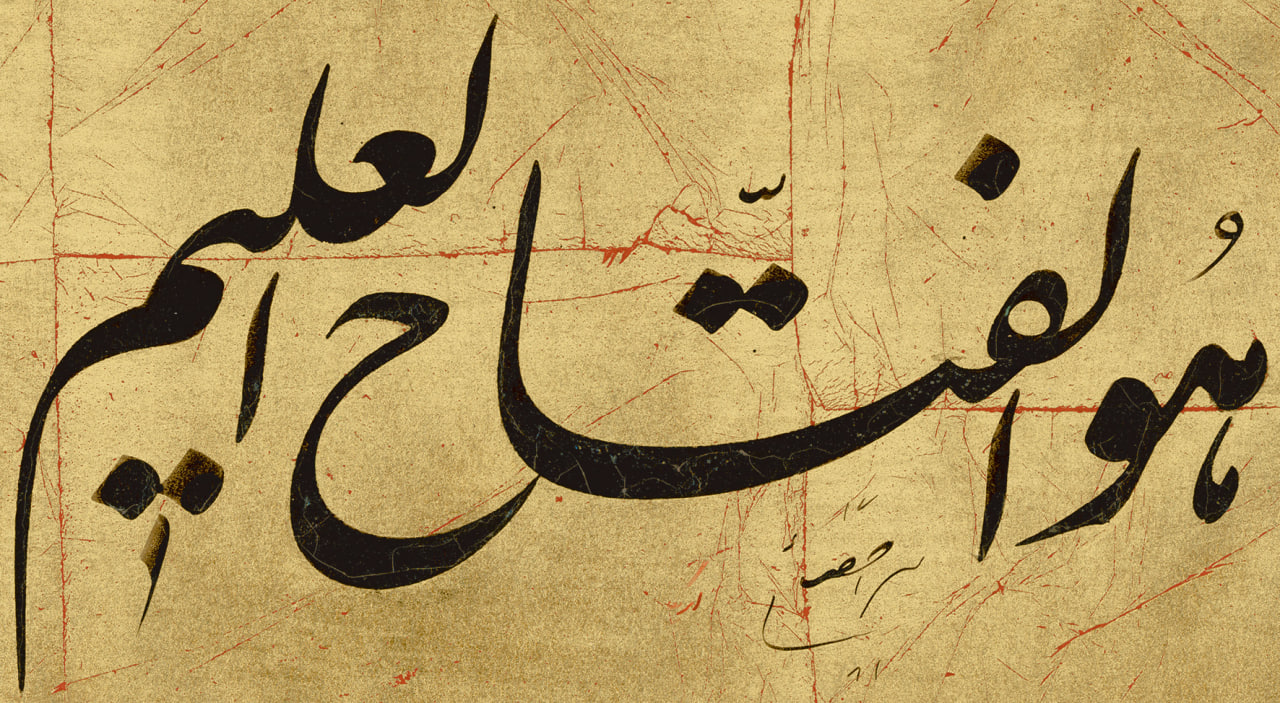 هو الفتاح العلیم